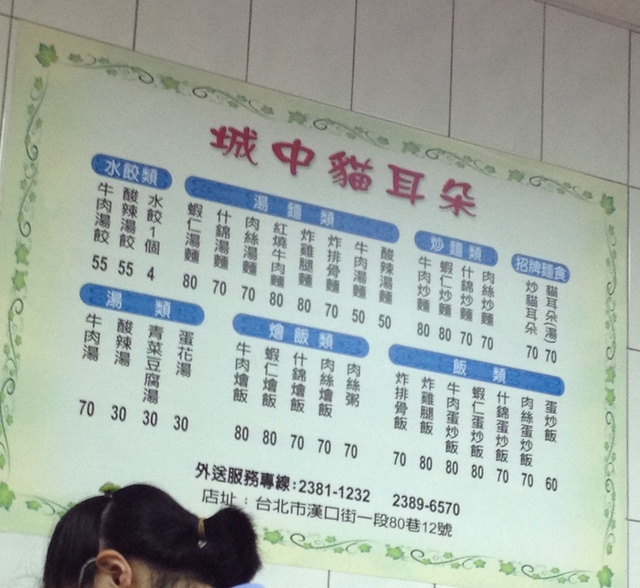 城中貓耳朵
招牌麵食
貓耳朵(湯) 70
炒貓耳朵 70
炒麵類
肉絲炒麵 70
什錦炒麵 70
蝦仁炒麵 80
牛肉炒麵 80
湯麵類
酸辣湯麵 50
牛肉湯麵 50
炸排骨麵 70
炸雞腿麵 80
紅燒牛肉麵 80
肉絲湯麵 70
什錦湯麵 70
蝦仁湯麵 80
水餃類
水餃1個 4
酸辣湯餃 55
牛肉湯餃 55
飯類
蛋炒飯 60
肉絲蛋炒飯 70
什錦蛋炒飯 70
蝦仁蛋炒飯 80
牛肉蛋炒飯 80
炸雞腿飯 80
炸排骨飯 70
燴飯類
肉絲粥 70
肉絲燴飯 70
什錦燴飯 70
蝦仁燴飯 80
牛肉燴飯 80
湯類
蛋花湯 30
青菜豆腐湯 30
酸辣湯 30
牛肉湯 70
外送服務專線:2381-1232 2389-6570
店址：台北市漢口街一段80巷12號